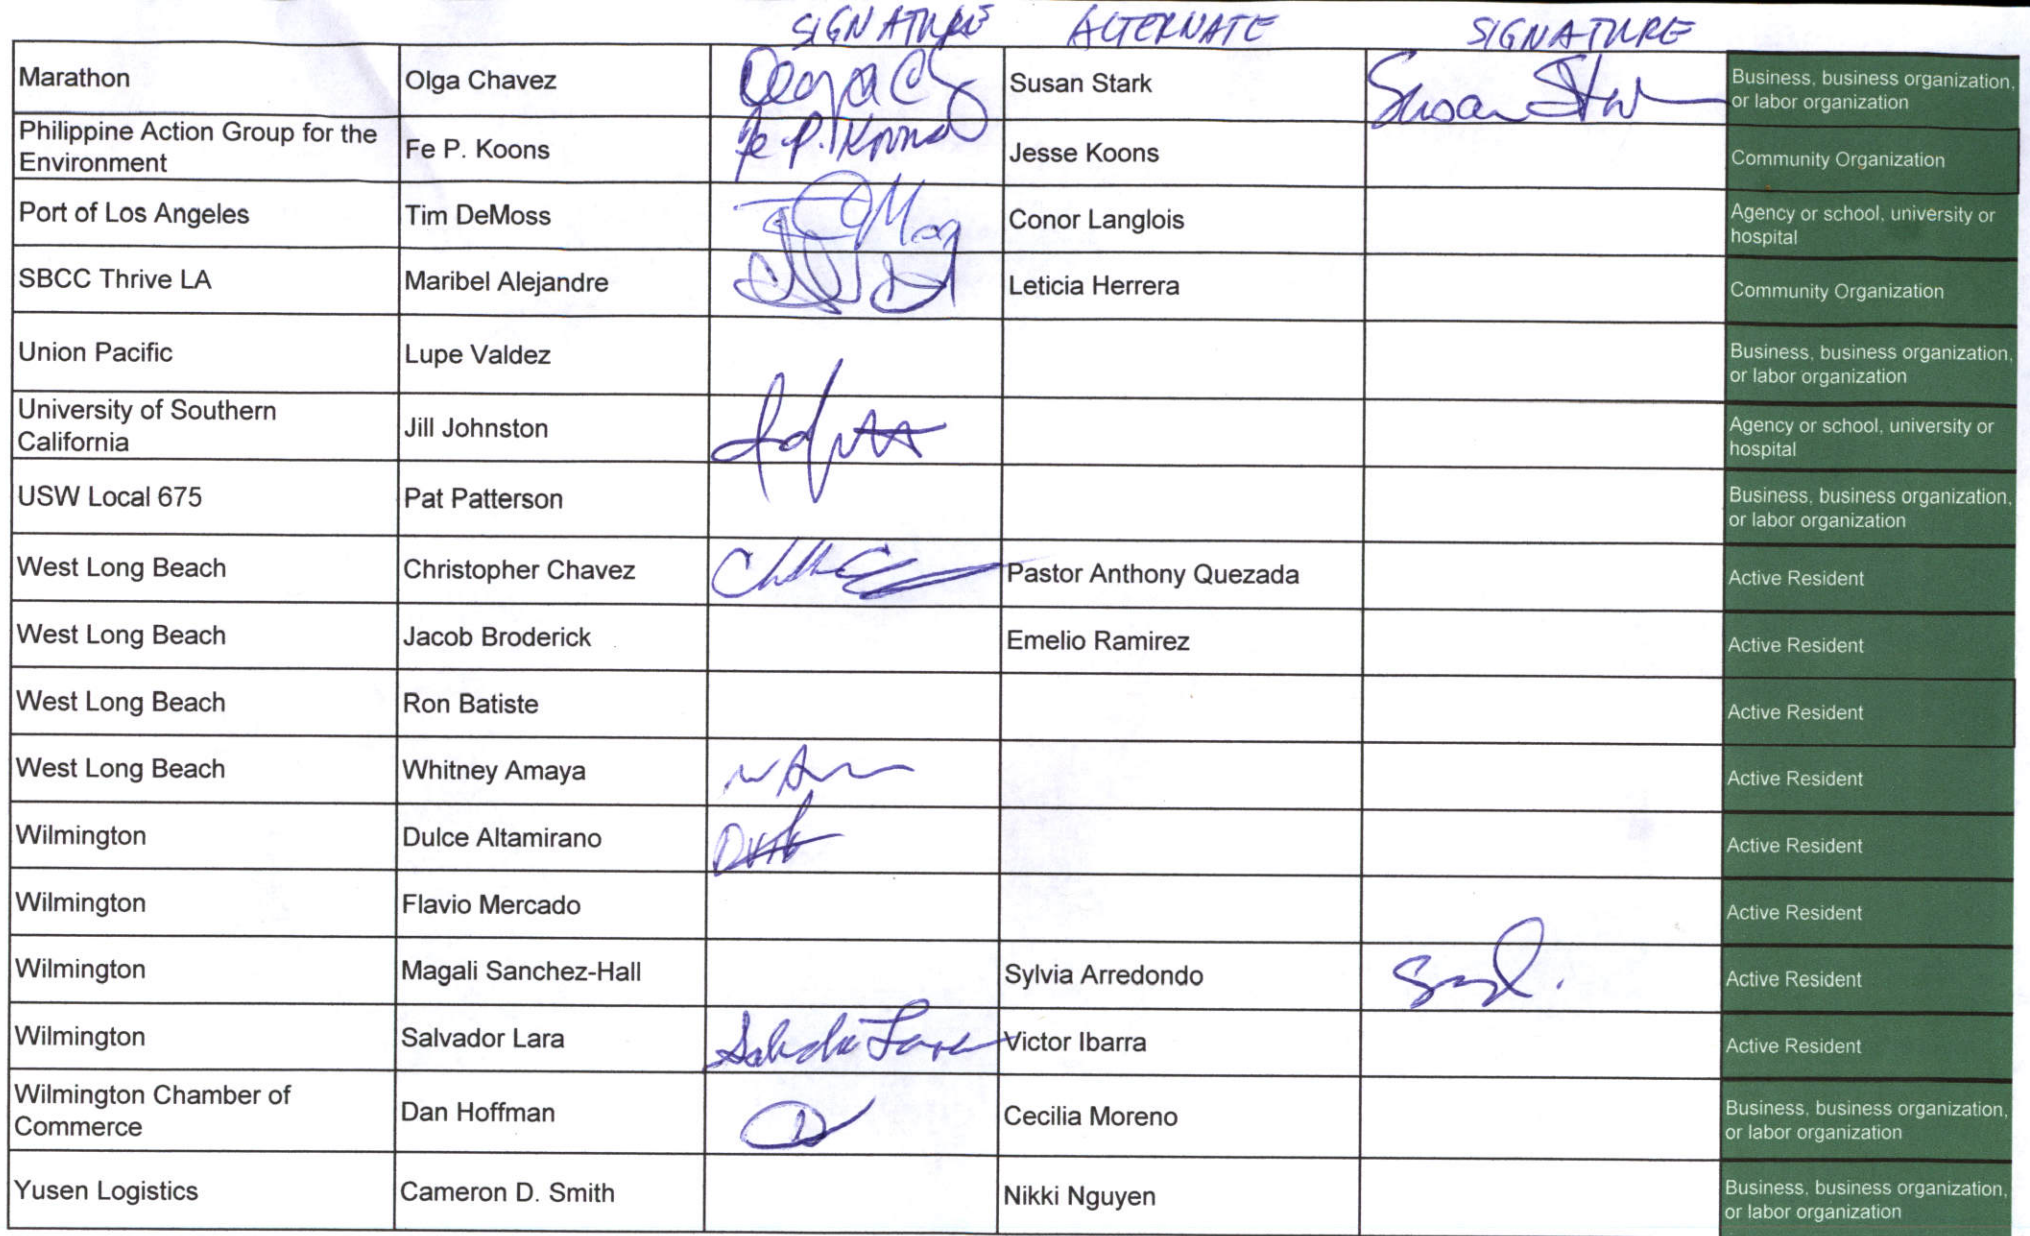 SIGNATURE ALTERNATE SIGNATURE
Marathon Olga Chavez Susan Stark Susan Stark Business, business organization,
or labor organization
Philippine Action Group for the
Environment Fe P. Koons Fe P. Koons Jesse Koons Community Organization
Port of Los Angeles Tim DeMoss Conor Langlois Agency or school, university or
hospital
SBCC Thrive LA Maribel Alejandre Leticia Herrera Community Organization
Union Pacific Lupe Valdez Business, business organization,
or labor organization
University of Southern
California Jill Johnston Agency or school, university or
hospital
USW Local 675 Pat Patterson Business, business organization,
or labor organization
West Long Beach Christopher Chavez Pastor Anthony Quezada Active Resident
West Long Beach Jacob Broderick Emelio Ramirez Active Resident
West Long Beach Ron Batiste Active Resident
West Long Beach Whitney Amaya Active Resident
Wilmington Dulce Altamirano Active Resident
Wilmington Flavio Mercado Active Resident
Wilmington Magali Sanchez-Hall Sylvia Arredondo Active Resident
Wilmington Salvador Lara Salvador Lara Victor Ibarra Active Resident
Wilmington Chamber of
Commerce Dan Hoffman Cecilia Moreno Business, business organization,
or labor organization
Yusen Logistics Cameron D. Smith Nikki Nguyen Business, business organization,
or labor organization